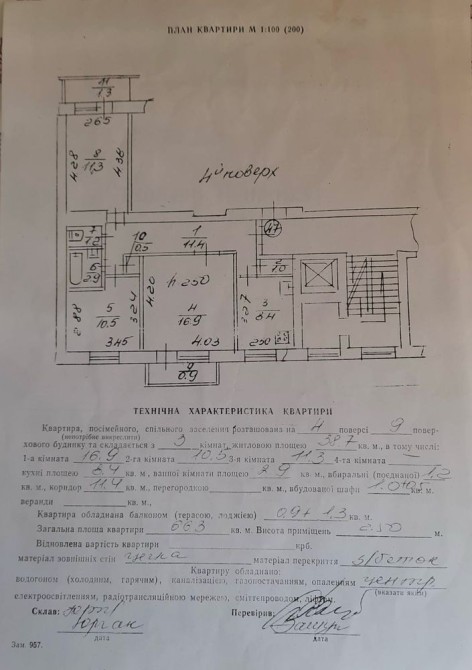 ПЛАН КВАРТИРИ М 1:100 (200)
11
1.3
265
428
8
11,3
434
4й поверх
7
1.2
10
0.5
1
11.4
47
2
1.0
6
2.9
420
h 250
5
10.5
324
4
16.9
327
3
8.4
288
345
4.03
250
9
0.9
ТЕХНІЧНА ХАРАКТЕРИСТИКА КВАРТИРИ
Квартира, посімейного, спільного заселення розташована на 4 поверсі 9 повер-
(непотрібне викреслити)
хового будинку та складається з 3 кімнат, житловою площею 38.7 кв. м., в тому числі:
1-а кімната 16.9 2-га кімната 10,5 3-я кімната 11.3 4-та кімната
кухні площею 8.4 кв. м., ванної кімнати площею 2.9 кв. м., вбиральні (поєднаної) 1,2
кв. м., коридор 11.4 кв. м., перегородкою кв. м., вбудованої шафи 1.0+0.5 кв. м.
веранди кв. м.,
Квартира обладнана балконом (терасою, лоджією) 0,9 + 1,3 кв. м.
Загальна площа квартири 66.3 кв. м. Висота приміщень 2.50 м.
Відновлена вартість квартири крб.
матеріал зовнішніх стін цегла матеріал перекриття з/бетон
Квартиру обладнано:
водогоном (холодним, гарячим), каналізацією, газопостачанням, опаленням центр
(вказати яким)
електроосвітленням, радіотрансляційною мережею, сміттєпроводом, ліфтом.
Склав: Перевірив:
дата дата
Зам. 957.